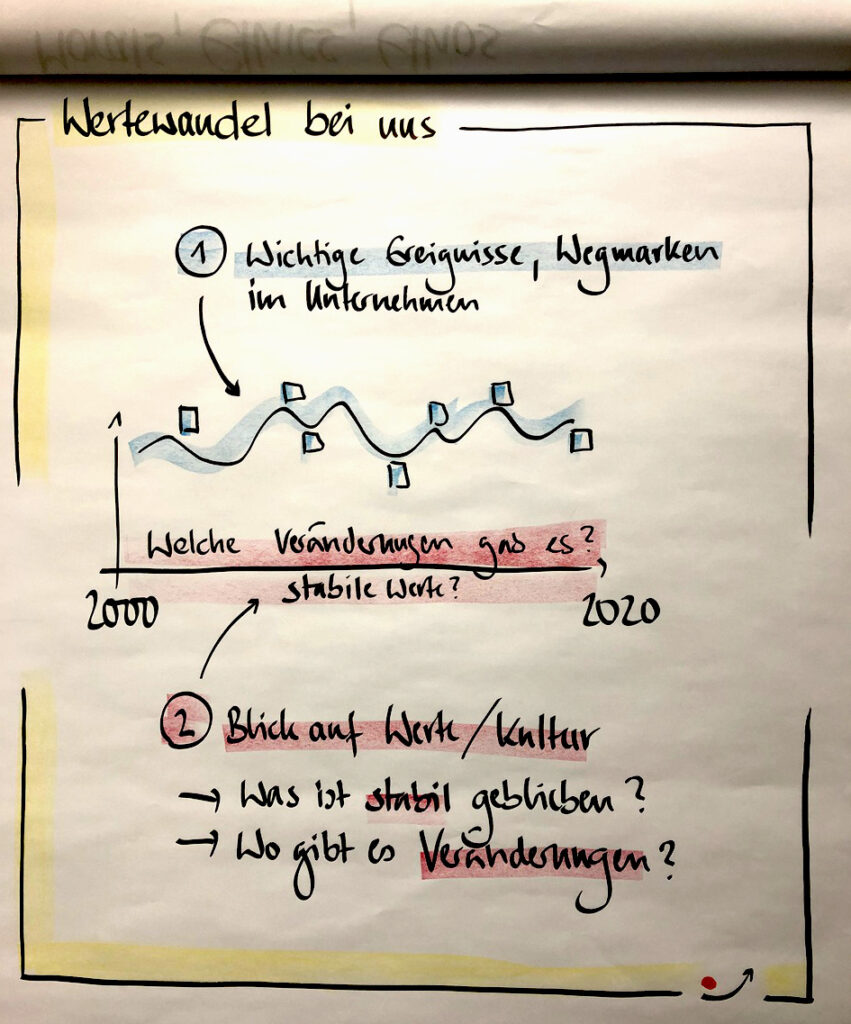 Wertewandel bei uns
1 Wichtige Ereignisse, Wegmarken
im Unternehmen
Welche Veränderungen gab es?
stabile Werte?
2000 2020
2 Blick auf Werte/Kultur
→ Was ist stabil geblieben?
→ Wo gibt es Veränderungen?